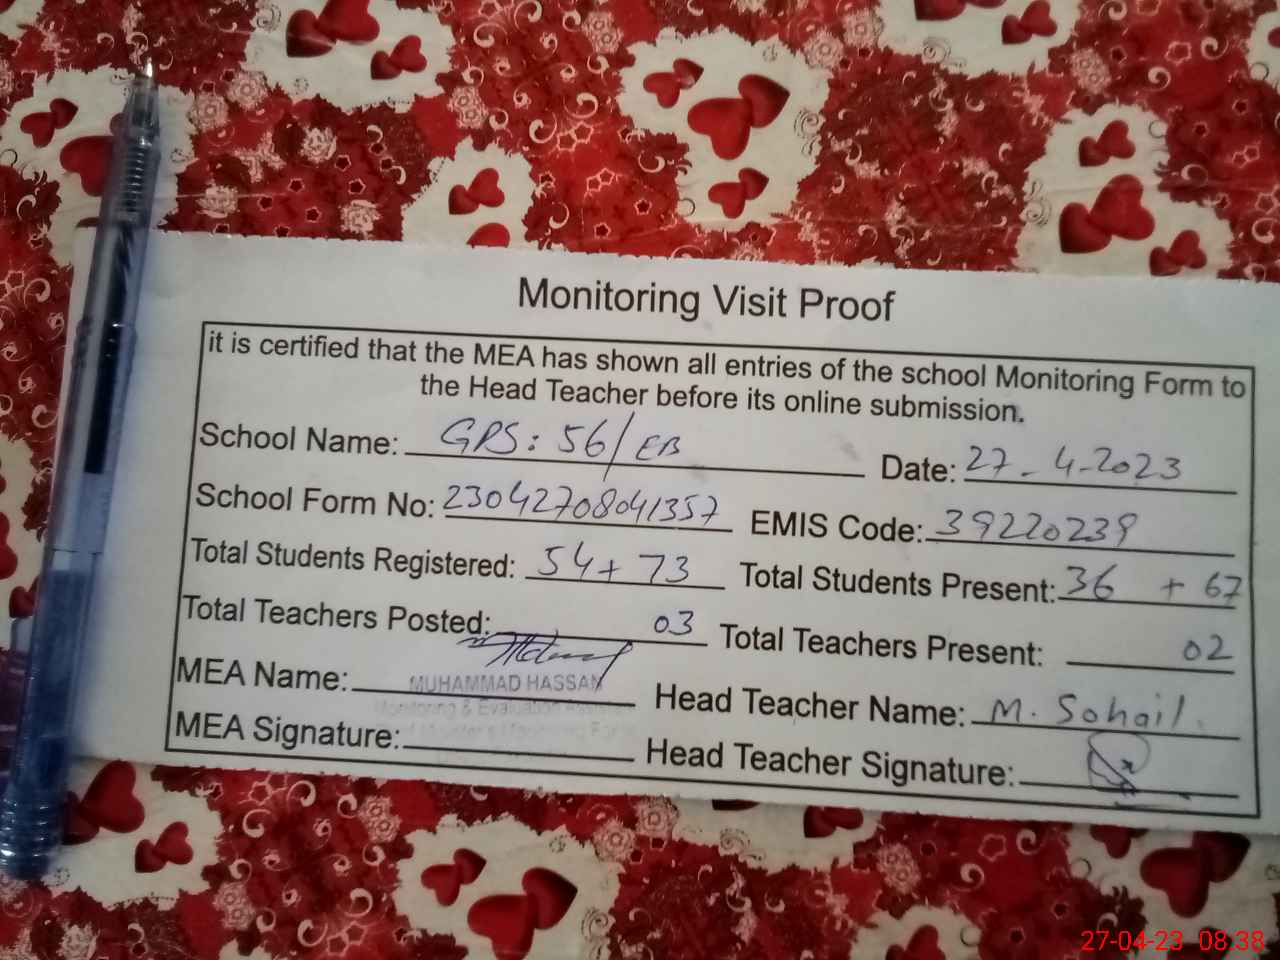 Monitoring Visit Proof
it is certified that the MEA has shown all entries of the school Monitoring Form to
the Head Teacher before its online submission.
School Name: GPS: 56/EB Date: 27-4-2023
School Form No: 23042708041357 EMIS Code: 39220239
Total Students Registered: 54+73 Total Students Present: 36 + 67
Total Teachers Posted: 03 Total Teachers Present: 02
MEA Name: MUHAMMAD HASSAN Head Teacher Name: M. Sohail.
Monitoring & Evaluation Assistant
MEA Signature: Head Teacher Signature:
27-04-23 08:38